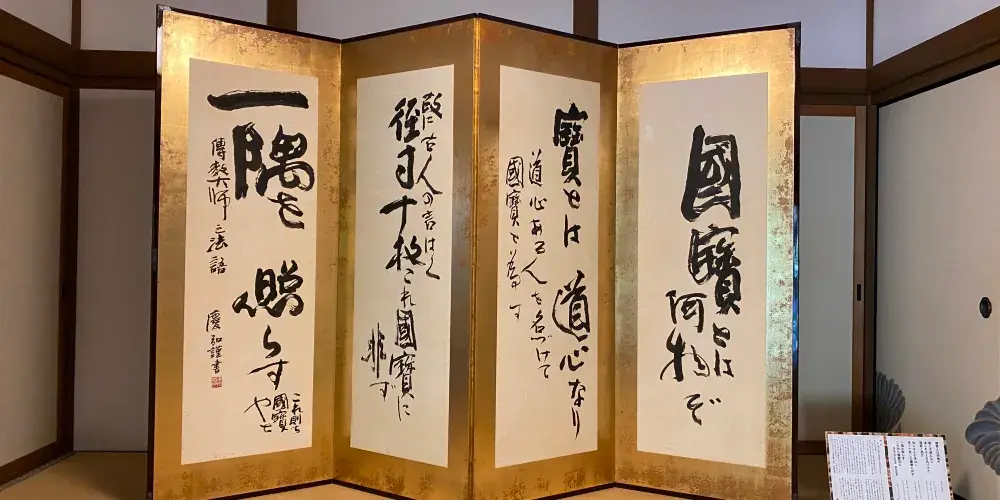 國寶とは
何物ぞ
寶とは道心なり
道心ある人を名づけて
國寶と為す
故に古人の言はく
径寸十枚これ國寶に
非ず
一隅を照らす
これ則ち
國寶
也と
傳教大師之法語
慶弘謹書